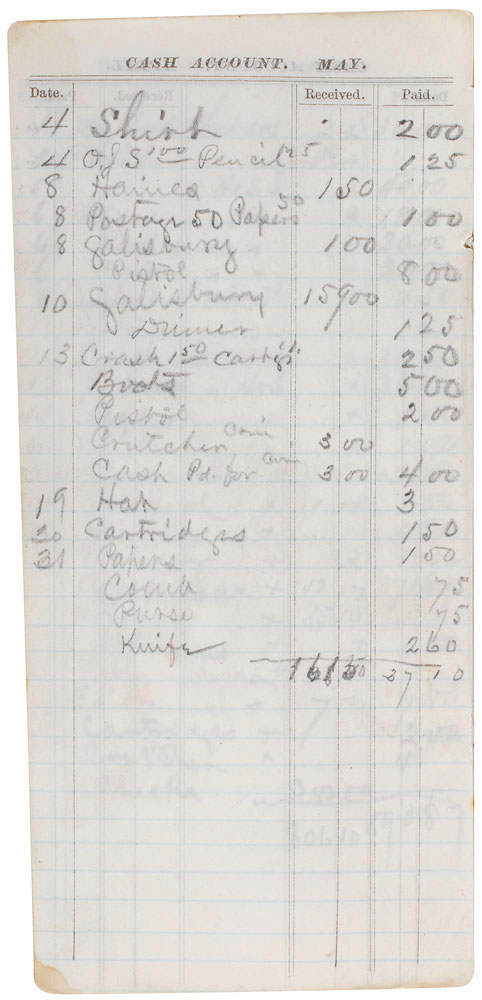 CASH ACCOUNT. MAY.
Date. Received. Paid.
4 Shirt 2 00
4 O J S 1 00 Pencil 25 1 25
8 Haines 1 50
8 Postage 50 Papers 50 1 00
8 Galisbury 1 00
Pistol 8 00
10 Galisbury 159 00
Dinner 1 25
13 Crash 1 50 Cartg's 1. 2 50
Boots 5 00
Pistol 2 00
Crutcher Corn 3 00
Cash Pd. for Corn 3 00 4 00
19 Hat 3
20 Cartridges 1 50
31 Papers 1 50
Comb 75
Purse 75
Knife 2 60
37 10